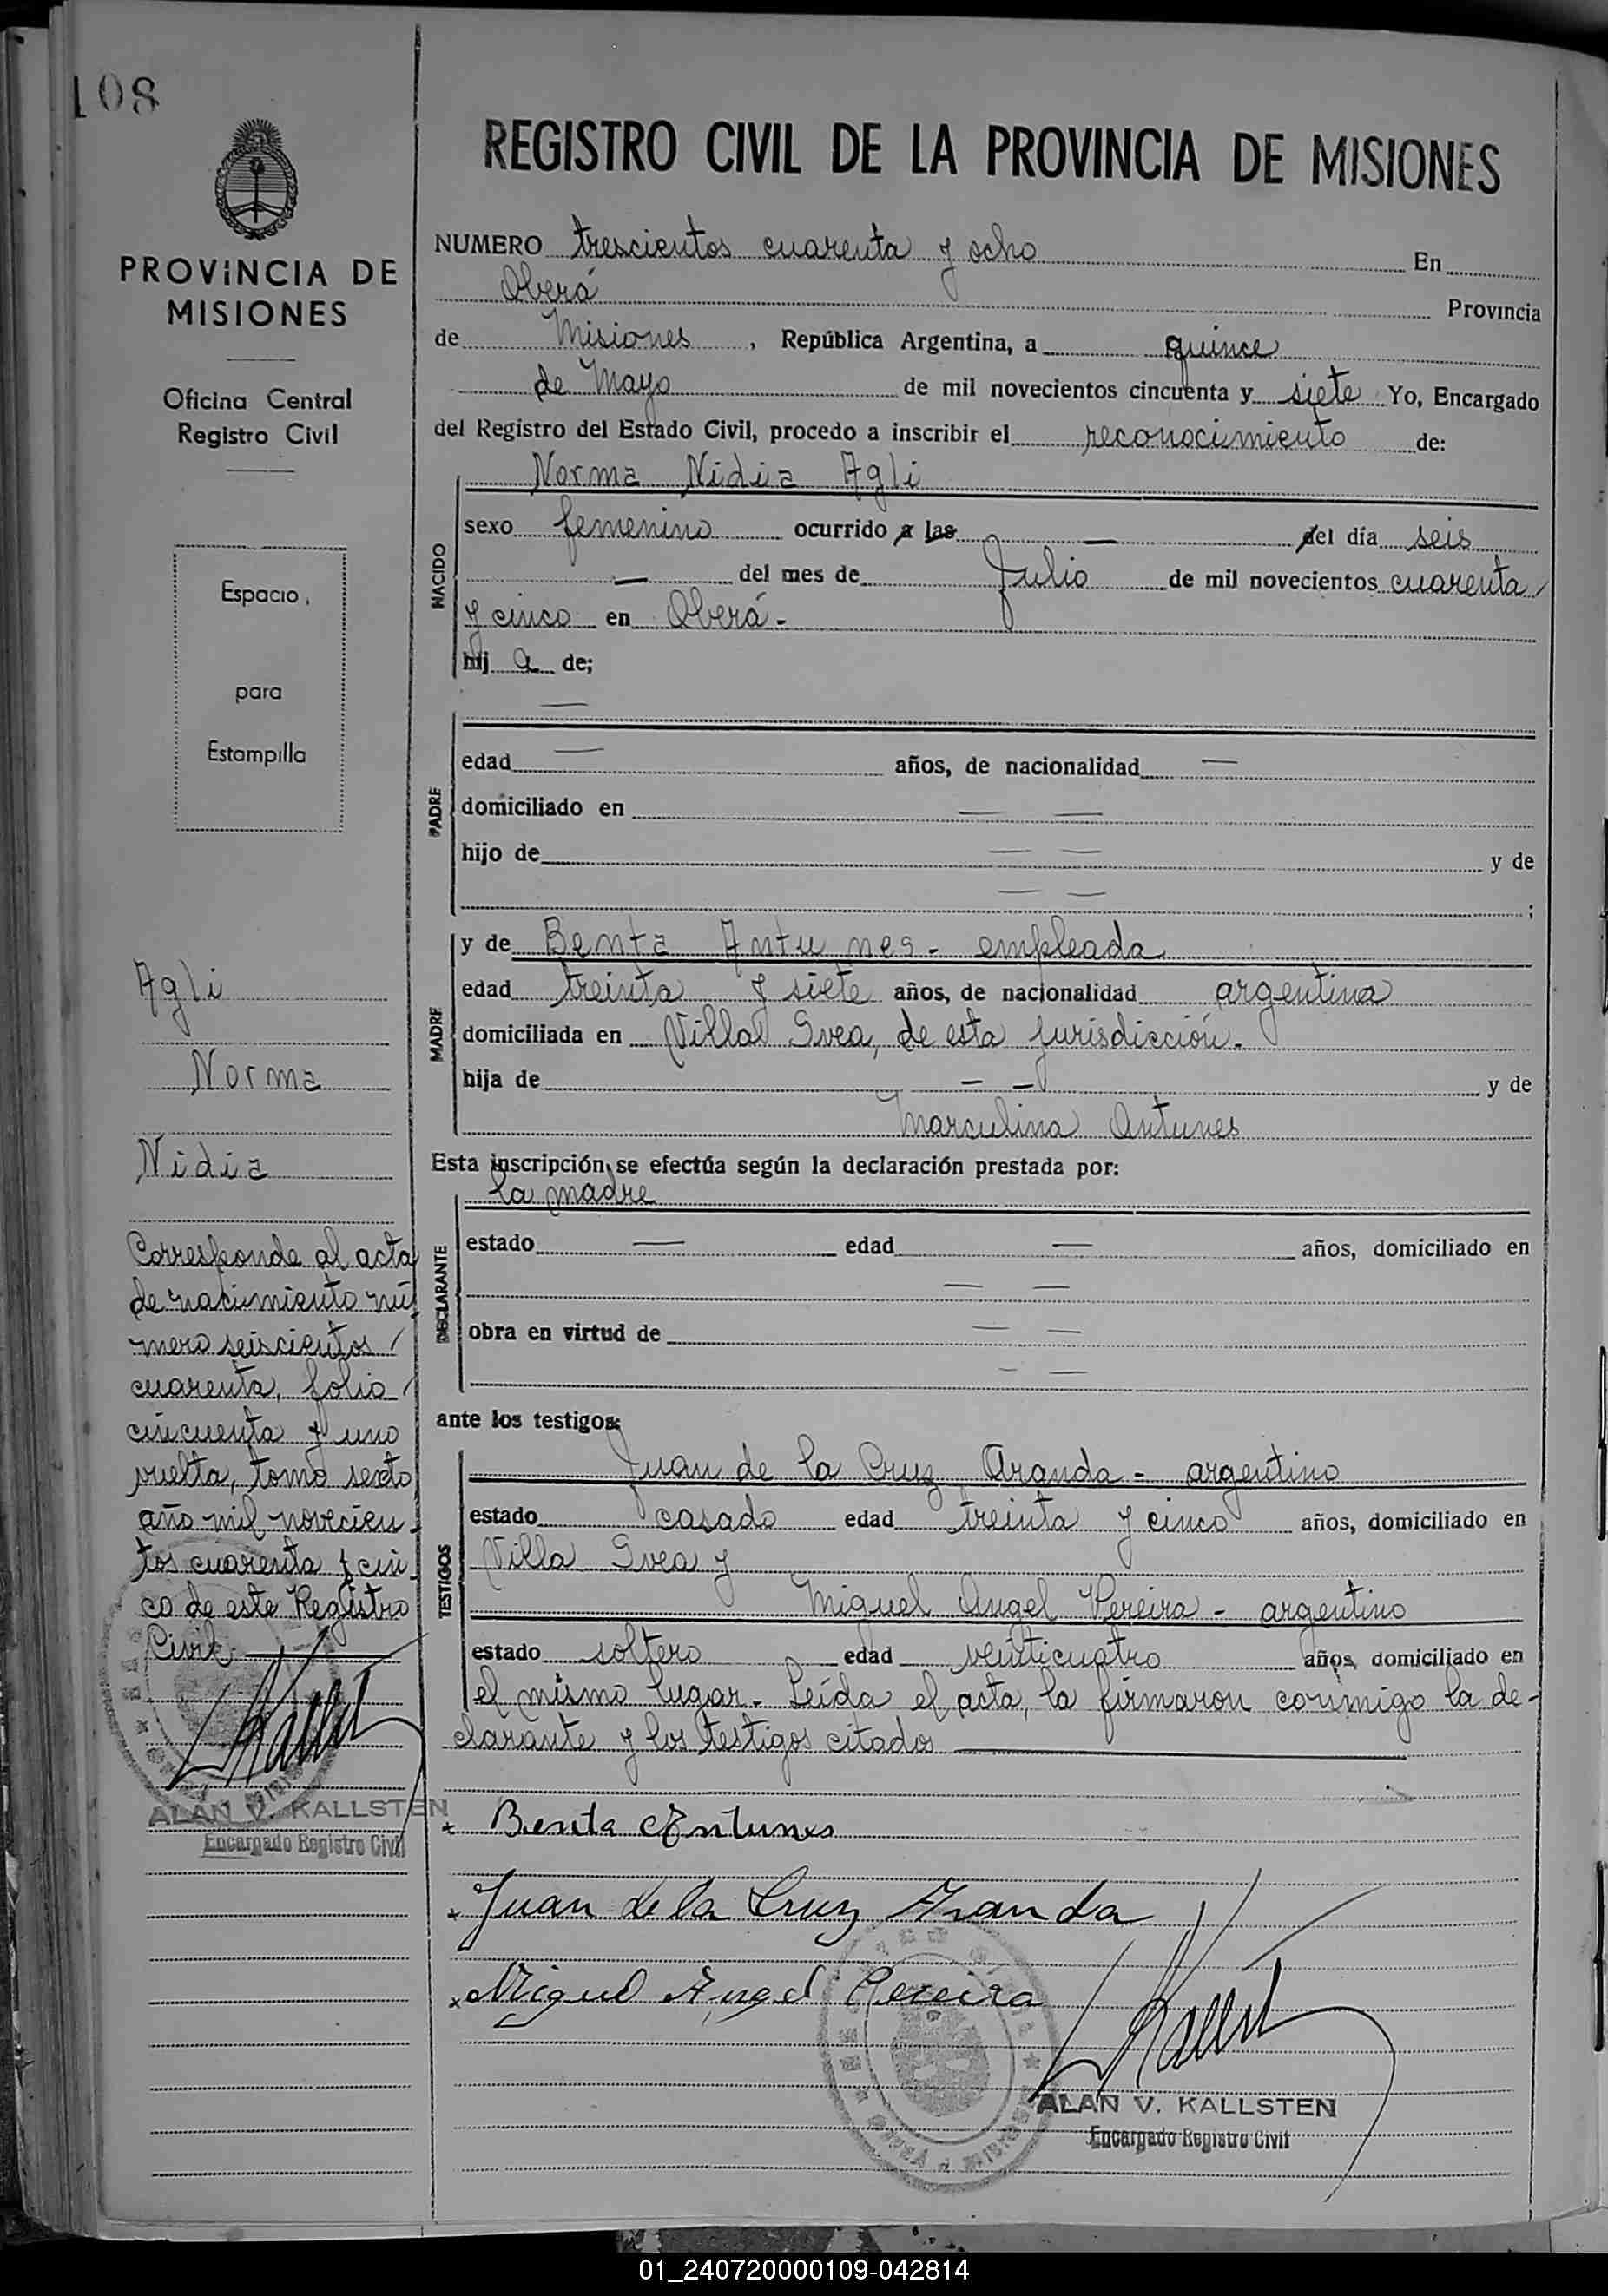 108
PROVINCIA DE
MISIONES
Oficina Central
Registro Civil
Espacio
para
Estampilla
Agli
Norma
Nidia
Corresponde al acta
de nacimiento nú
mero seiscientos /
cuarenta, folio /
cincuenta y uno
vuelta, tomo sexto
año mil novecien-
tos cuarenta y cin-
co de este Registro
Civil.
ALAN V. KALLSTEN
Encargado Registro Civil
REGISTRO CIVIL DE LA PROVINCIA DE MISIONES
NUMERO trescientos cuarenta y ocho En
Oberá Provincia
de Misiones, República Argentina, a quince
de Mayo de mil novecientos cincuenta y siete Yo, Encargado
del Registro del Estado Civil, procedo a inscribir el reconocimiento de:
NACIDO
Norma Nidia Agli
sexo femenino ocurrido a las — del día seis
— del mes de Julio de mil novecientos cuarenta /
y cinco en Oberá -
hij a de;
PADRE
—
edad — años, de nacionalidad —
domiciliado en — —
hijo de — — y de
— — ;
MADRE
y de Benta Antunes - empleada
edad treinta y siete años, de nacionalidad argentina
domiciliada en Villa Svea, de esta jurisdicción -
hija de — — y de
Marculina Antunes
Esta inscripción se efectúa según la declaración prestada por:
DECLARANTE
la madre
estado — edad — años, domiciliado en
— —
obra en virtud de — —
— —
ante los testigos:
TESTIGOS
Juan de la Cruz Aranda - argentino
estado casado edad treinta y cinco años, domiciliado en
Villa Svea y
Miguel Angel Pereira - argentino
estado soltero edad veinticuatro años, domiciliado en
el mismo lugar - Leída el acta, la firmaron conmigo la de-
clarante y los testigos citados
Benta Antunes
Juan de la Cruz Aranda
Miguel Angel Pereira
ALAN V. KALLSTEN
Encargado Registro Civil
01_240720000109-042814